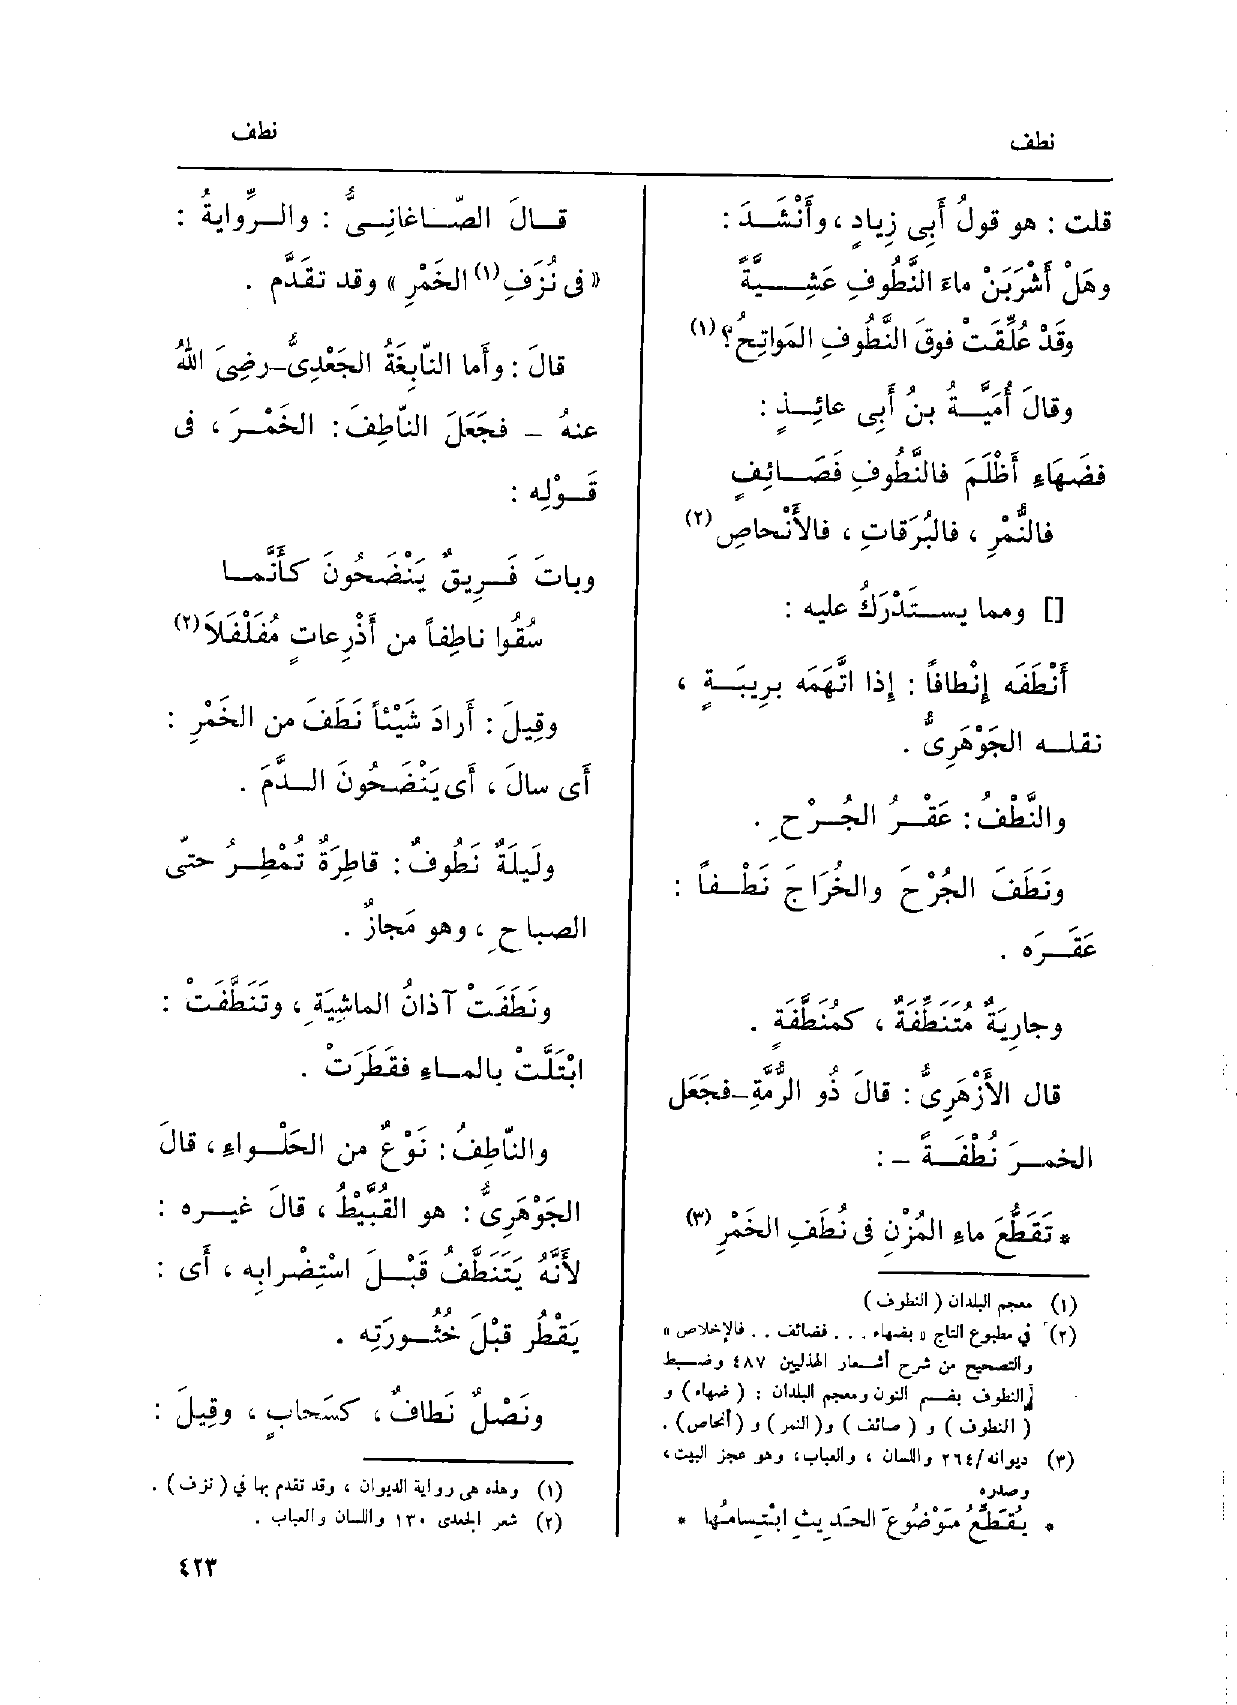 نطف
قلت : هو قولُ أَبِى زِيادٍ ، وأَنْشَدَ :
وهَلْ أَشْرَبَنْ ماءَ النَّطُوفِ عَشِيَّةً
وقَدْ عُلِّقَتْ فوقَ النَّطُوفِ المَواتِحُ؟ (١)
وقالَ أُمَيَّةُ بنُ أَبِى عائِذٍ :
فضَهَاءِ أَظْلَمَ فالنَّطُوفِ فَصَائِفٍ
فالنُّمْرِ ، فالبُرَقاتِ ، فالأَنْحاصِ (٢)
[] ومما يستَدْرَكُ عليه :
أَنْطَفَه إِنْطافاً : إِذا اتَّهَمَه بِرِيبَةٍ ،
نقله الجَوْهَرِىُّ .
والنَّطْفُ : عَقْرُ الجُرْحِ .
ونَطَفَ الجُرْحَ والخُرَاجَ نَطْفاً :
عَقَرَه .
وجارِيَةٌ مُتَنَطِّفَةٌ ، كمُنَطَّفَةٍ .
قال الأَزْهَرِىُّ : قالَ ذُو الرُّمَّةِ – فجَعَل
الخمرَ نُطْفَةً – :
* تَقَطُّعَ ماءِ المُزْنِ فى نُطَفِ الخَمْرِ (٣)
(١) معجم البلدان ( النطوف )
(٢) في مطبوع التاج « بفهاء . . . فضائف . . فالإخلاص »
والتصحيح من شرح أشعار الهذليين ٤٨٧ وضبط
النطوف بضم النون ومعجم البلدان : ( ضهاء ) و
( النطوف ) و ( صائف ) و( النمر ) و ( أنحاص ) .
(٣) ديوانه/٢٦٤ واللسان ، والعباب، وهو عجز البيت،
وصدره
* يُقَطِّعُ مَوْضُوعَ الحَدِيثِ ابْتِسامُها *
نطف
قالَ الصّاغانِىُّ : والرِّوايةُ :
« فى نُزَفِ (١) الخَمْرِ » وقد تقَدَّم .
قالَ : وأَما النّابِغَةُ الجَعْدِىُّ – رضِىَ اللهُ
عنهُ – فجَعَلَ النّاطِفَ : الخَمْرَ ، فى
قَوْلِه :
وباتَ فَرِيقٌ يَنْضَحُونَ كأَنَّما
سُقُوا ناطِفاً من أَذْرِعاتٍ مُفَلْفَلاَ (٢)
وقِيلَ : أَرادَ شَيْئاً نَطَفَ من الخَمْرِ :
أَى سالَ ، أَى يَنْضَحُونَ الدَّمَ .
ولَيلَةٌ نَطُوفٌ : قاطِرَةٌ تُمْطِرُ حتّى
الصباحِ ، وهو مَجازٌ .
ونَطَفَتْ آذانُ الماشِيَةِ ، وتَنَطَّفَتْ :
ابْتَلَّتْ بالماءِ فقَطَرَتْ .
والنّاطِفُ : نَوْعٌ من الحَلْواءِ ، قالَ
الجَوْهَرِىُّ : هو القُبَّيْطُ ، قالَ غيره :
لأَنَّهُ يَتَنَطَّفُ قَبْلَ اسْتِضْرابِه ، أَى :
يَقْطُر قبْلَ خُثُورَتِه .
ونَصْلٌ نَطافٌ ، كسَحابٍ ، وقِيلَ :
(١) وهذه هى رواية الديوان ، وقد تقدم بها في ( نزف ) .
(٢) شعر الجعدى ١٣٠ واللسان والعباب .
٤٢٣